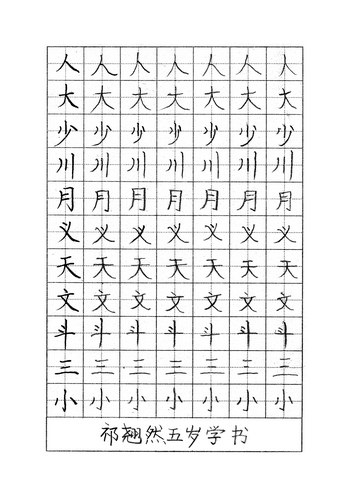 人人人人人人人
大大大大大大大
少少少少少少少
川川川川川川川
月月月月月月月
义义义义义义义
天天天天天天天
文文文文文文文
斗斗斗斗斗斗斗
三三三三三三三
小小小小小小小
祁翘然五岁学书